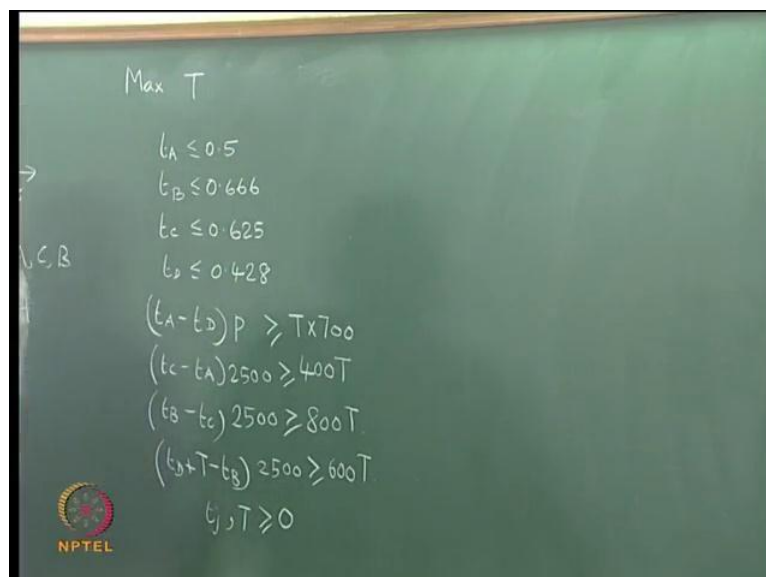 Max T
t_A ≤ 0.5
t_B ≤ 0.666
t_C ≤ 0.625
t_D ≤ 0.428
(t_A - t_D) P ≥ T×700
(t_C - t_A) 2500 ≥ 400T
(t_B - t_C) 2500 ≥ 800T.
(t_D + T - t_B) 2500 ≥ 600T.
t_j, T ≥ 0
C, B
NPTEL